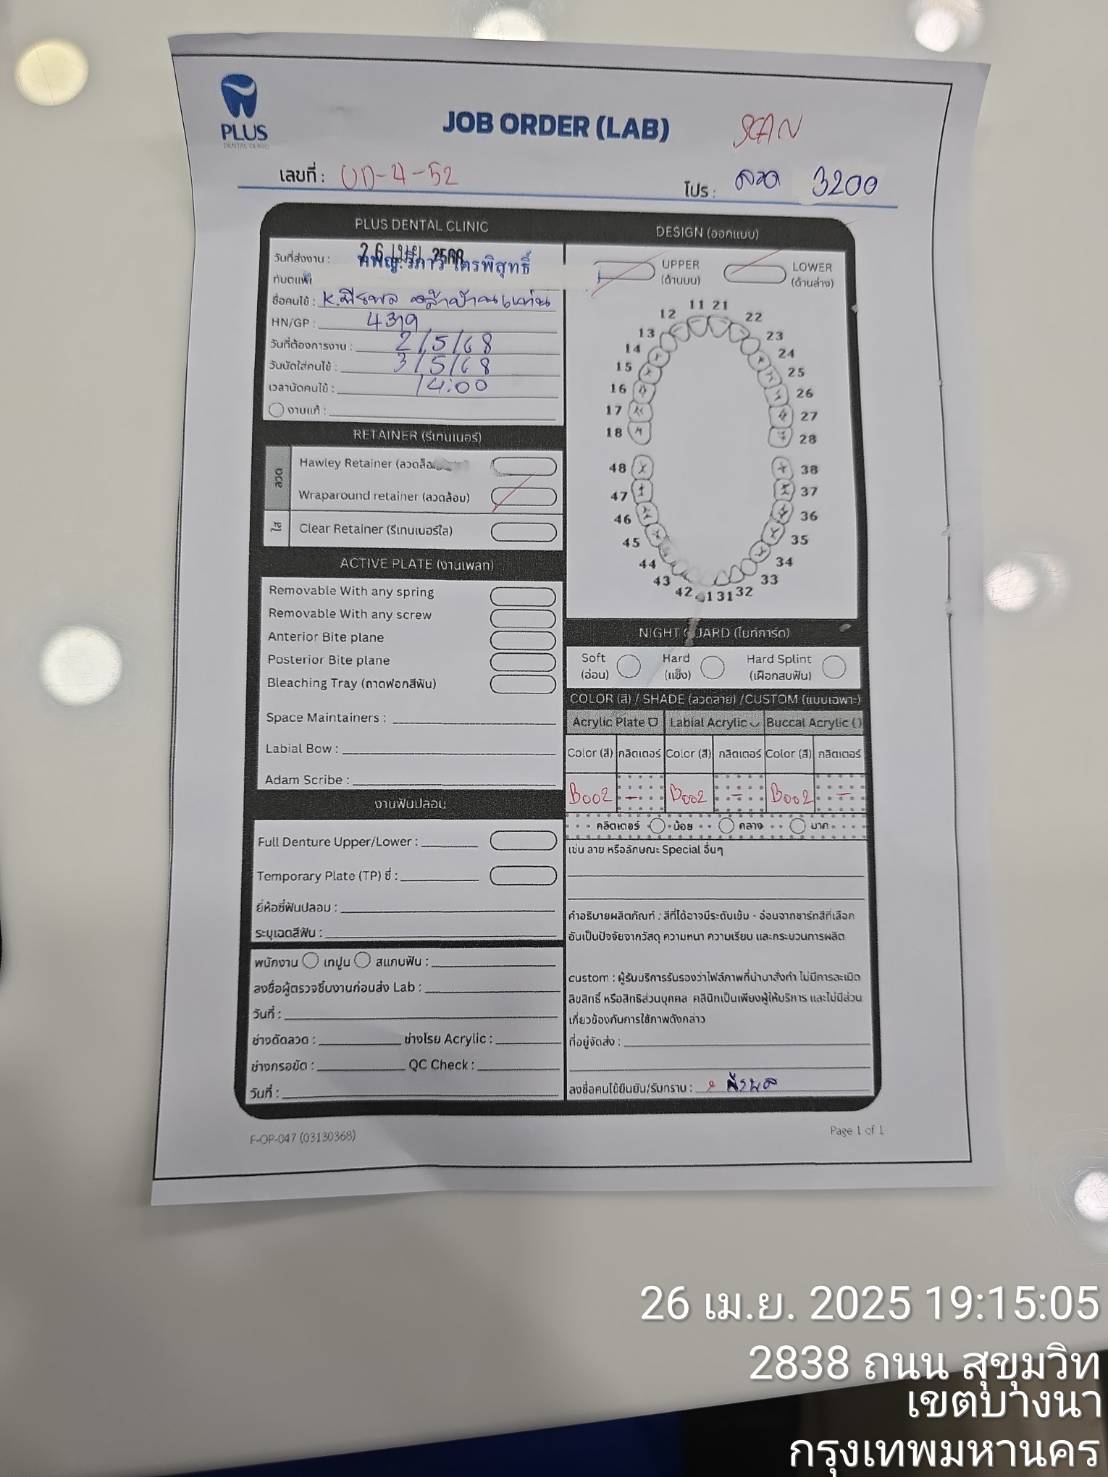 PLUS
DENTAL CLINIC
JOB ORDER (LAB)
SCAN
เลขที่ : UD-4-52
โปร : ลวด 3200
PLUS DENTAL CLINIC
วันที่ส่งงาน : 26 เม.ย. 2568
ทันตแพทย์ ทพญ.วิภาวี ไตรพิสุทธิ์
ชื่อคนไข้ : K.
HN/GP : 4319
วันที่ต้องการงาน : 2/5/68
วันนัดใส่คนไข้ : 3/5/68
เวลานัดคนไข้ : 14:00
งานแก้ :
RETAINER (รีเทนเนอร์)
ลวด
Hawley Retainer
Wraparound retainer (ลวดล้อม)
ใส
Clear Retainer (รีเทนเนอร์ใส)
ACTIVE PLATE (งานเพลท)
Removable With any spring
Removable With any screw
Anterior Bite plane
Posterior Bite plane
Bleaching Tray (ถาดฟอกสีฟัน)
Space Maintainers :
Labial Bow :
Adam Scribe :
งานฟันปลอม
Full Denture Upper/Lower :
Temporary Plate (TP) ซี่ :
ยี่ห้อซี่ฟันปลอม :
ระบุเฉดสีฟัน :
พนักงาน เคาน์ สแกนฟัน :
ลงชื่อผู้ตรวจชิ้นงานก่อนส่ง Lab :
วันที่ :
ช่างดัดลวด : ช่างโรย Acrylic :
ช่างกรอขัด : QC Check :
วันที่ :
DESIGN (ออกแบบ)
UPPER
(ด้านบน)
LOWER
(ด้านล่าง)
11 21
12 22
13 23
14 24
15 25
16 26
17 27
18 28
48 38
47 37
46 36
45 35
44 34
43 33
42 41 31 32
NIGHT GUARD (ไนท์การ์ด)
Soft
(อ่อน)
Hard
(แข็ง)
Hard Splint
(เฝือกสบฟัน)
COLOR (สี) / SHADE (ลวดลาย) /CUSTOM (แบบเฉพาะ)
Acrylic Plate Labial Acrylic Buccal Acrylic ()
Color (สี) กลิตเตอร์ Color (สี) กลิตเตอร์ Color (สี) กลิตเตอร์
B002 - B002 - B002 -
กลิตเตอร์ น้อย กลาง มาก
เช่น ลาย หรือลักษณะ Special อื่นๆ
คำอธิบายผลิตภัณฑ์ : สีที่ได้อาจมีระดับเข้ม - อ่อนจากชาร์ทสีที่เลือก
อันเป็นปัจจัยจากวัสดุ ความหนา ความเรียบ และกระบวนการผลิต
custom : ผู้รับบริการรับรองว่าไฟล์ภาพที่นำมาสั่งทำ ไม่มีการละเมิด
ลิขสิทธิ์ หรือสิทธิส่วนบุคคล คลินิกเป็นเพียงผู้ให้บริการ และไม่มีส่วน
เกี่ยวข้องกับการใช้ภาพดังกล่าว
ที่อยู่จัดส่ง :
ลงชื่อคนไข้ยืนยัน/รับทราบ :
F-OP-047 (03130368)
Page 1 of 1
26 เม.ย. 2025 19:15:05
2838 ถนน สุขุมวิท
เขตบางนา
กรุงเทพมหานคร